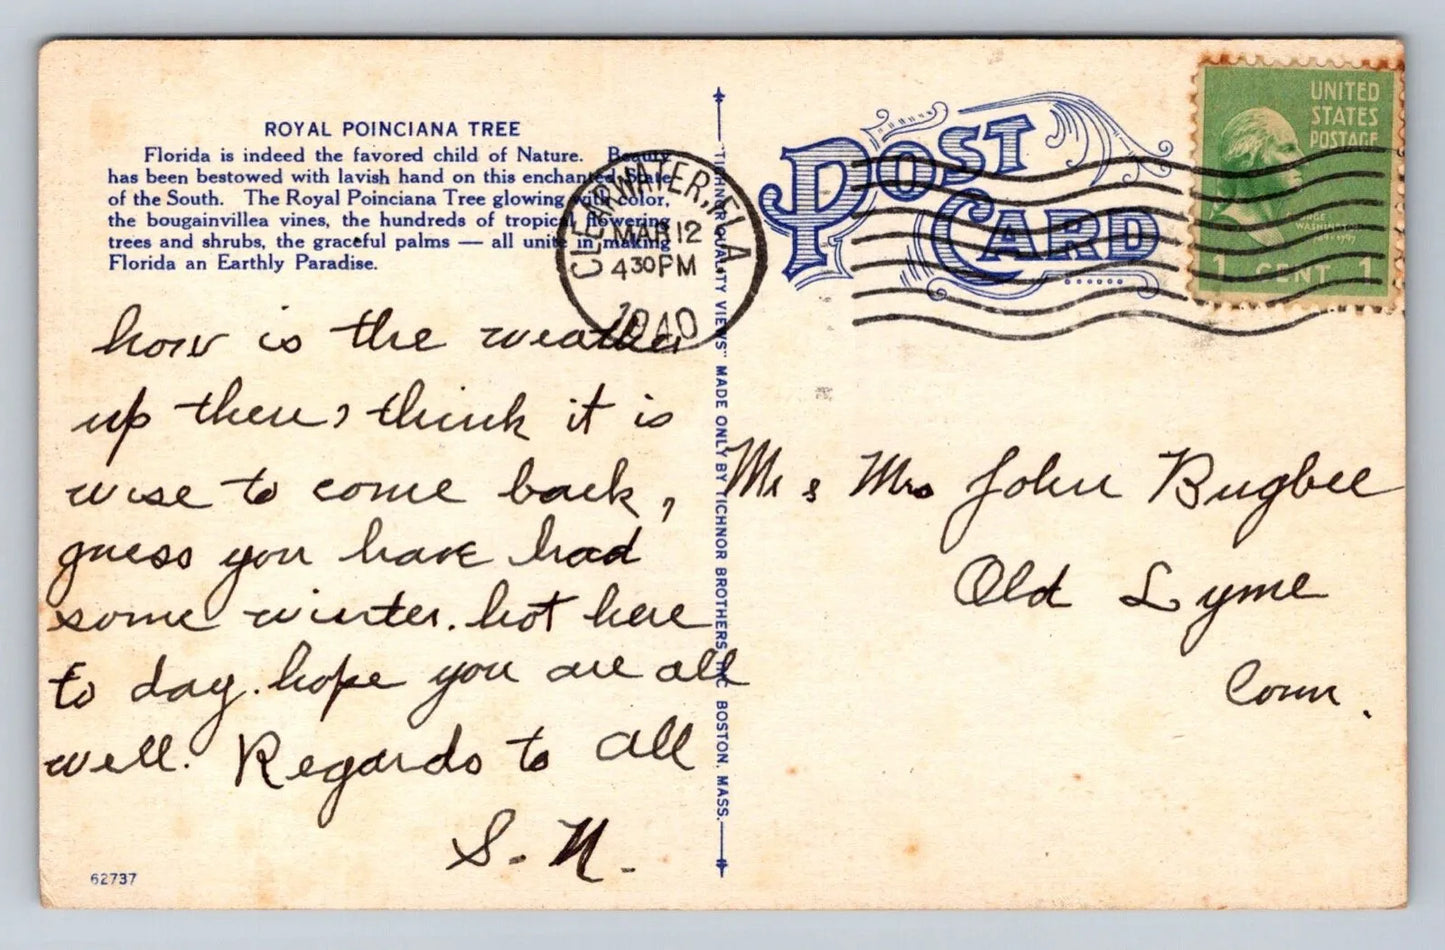 ROYAL POINCIANA TREE
Florida is indeed the favored child of Nature. Beauty
has been bestowed with lavish hand on this enchanted State
of the South. The Royal Poinciana Tree glowing with color,
the bougainvillea vines, the hundreds of tropical flowering
trees and shrubs, the graceful palms — all unite in making
Florida an Earthly Paradise.
how is the weather
up there, think it is
wise to come back,
guess you have had
some winter. hot here
to day. hope you are all
well. Regards to all
S. N.
62737
"TICHNOR QUALITY VIEWS" MADE ONLY BY TICHNOR BROTHERS INC. BOSTON, MASS.
CLEARWATER, FLA
MAR 12
4 30 PM
1940
POST
CARD
UNITED
STATES
POSTAGE
GEORGE
WASHINGTON
1 CENT 1
Mr & Mrs John Bugbee
Old Lyme
Conn.